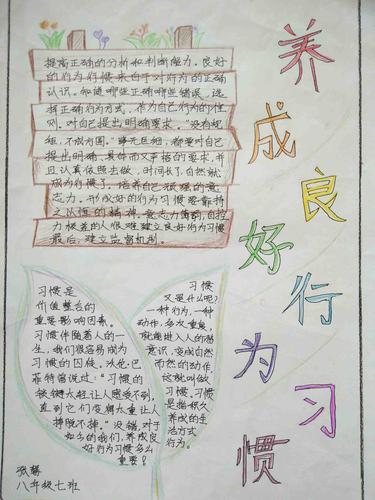 养成良好行为习惯
提高正确的分析和判断能力。良好
的行为习惯来自于对行为的正确
认识。知道哪些正确哪些错误，选
择正确行为方式，作为自己行为的准
则。对自己提出明确要求。“没有规
矩，不成方圆。”事无巨细，都要对自己
提出明确、具体而又严格的要求，并
且认真依照去做，时间长了，自然就
成为习惯了。培养自己顽强的意
志力。形成好的行为习惯要靠持
之以恒的精神。意志力薄弱，自控
力极差的人很难建立良好行为习惯
最后，建立监督机制。
习惯是
价值整合的
重要影响因素。
习惯伴随着人的一
生，我们很容易成为
习惯的囚徒。沃伦·巴
菲特曾说过：“习惯的
锁链太轻让人感受不到，
直到它们变得太重让人
挣脱不掉。”没错，对于
如今的我们，养成良
好行为习惯多么
重要？
习惯
又是什么呢？
一种行为，一种
动作，多次重复，
就能进入人的潜
意识，变成自然
而然的动作，
这就叫做
习惯。习惯
是指积久
养成的生
活方式
行为。
张馨
八年级七班